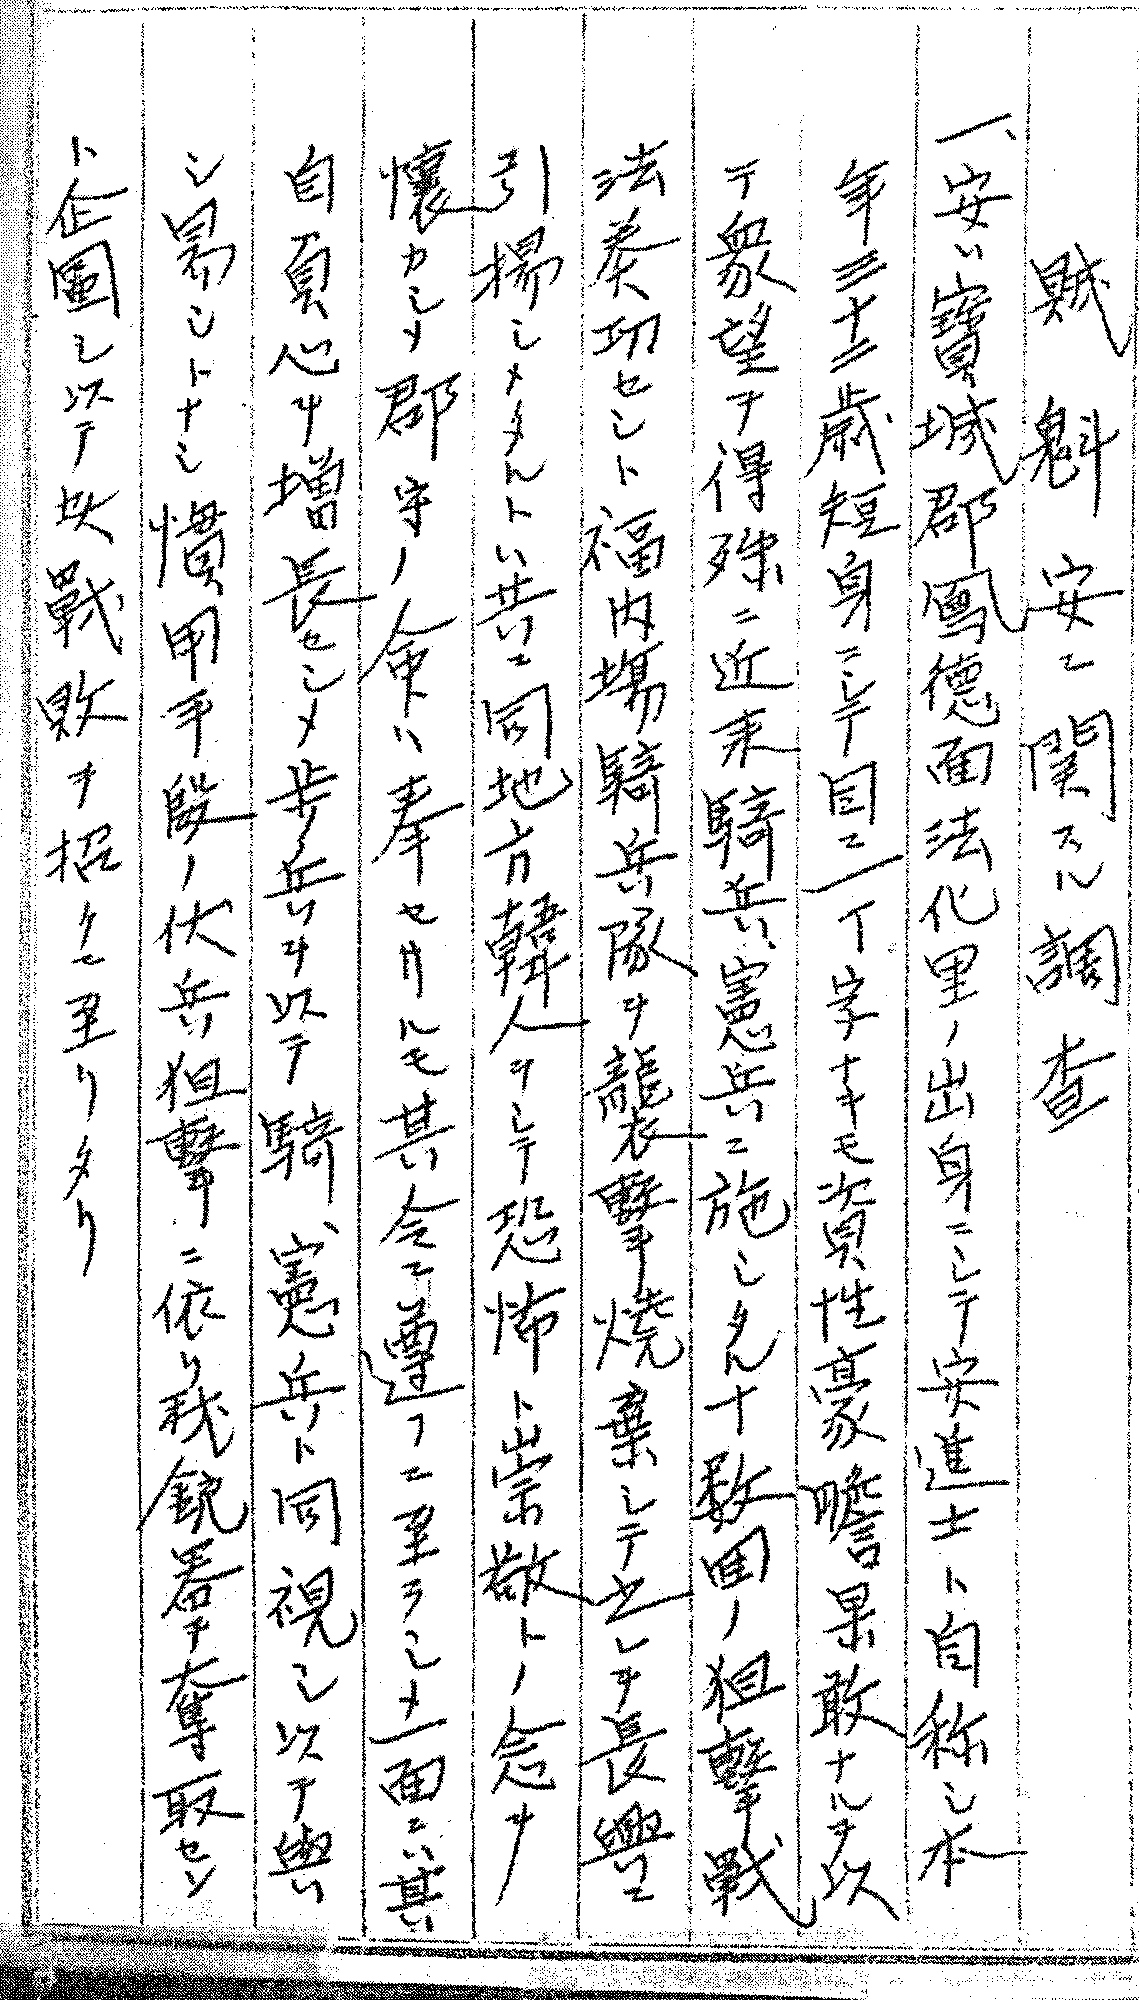 賊魁安ニ関スル調査
一、安ハ寶城郡鳳德面法化里ノ出身ニシテ安進士ト自称シ本
年三十二歳短身ニシテ目ニ一丁字ナキモ資性豪膽果敢ナルヲ以
テ衆望ヲ得殊ニ近来騎兵、憲兵ニ施シタル十数回ノ狙撃戦
法奏功セシト福内場騎兵隊ヲ襲撃燒棄シテ之レヲ長興ニ
引揚シメタルトハ共ニ同地方韓人ヲシテ恐怖ト崇敬トノ念ヲ
懐カシメ郡守ノ命ハ奉セサルモ其令ニ遵フニ至ラシメ一面ニハ其
自負心ヲ増長セシメ歩兵ヲ以テ騎、憲兵ト同視シ以テ與
シ易シトナシ慣用手段ノ伏兵狙撃ニ依リ我銃器ヲ奪取セン
ト企圖シ以テ決戰敗ヲ招クニ至リタリ